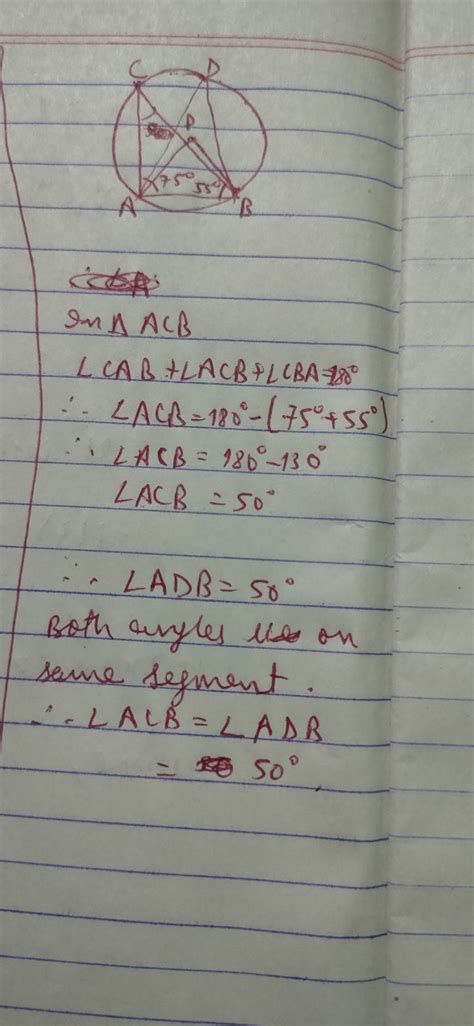 C D
P
75° 55°
A B
In Δ ACB
∠CAB + ∠ACB + ∠CBA = 180°
∴ ∠ACB = 180° - (75° + 55°)
∴ ∠ACB = 180° - 130°
∠ACB = 50°
∴ ∠ADB = 50°
Both angles lie on
same segment.
∴ ∠ACB = ∠ADB
= 50°